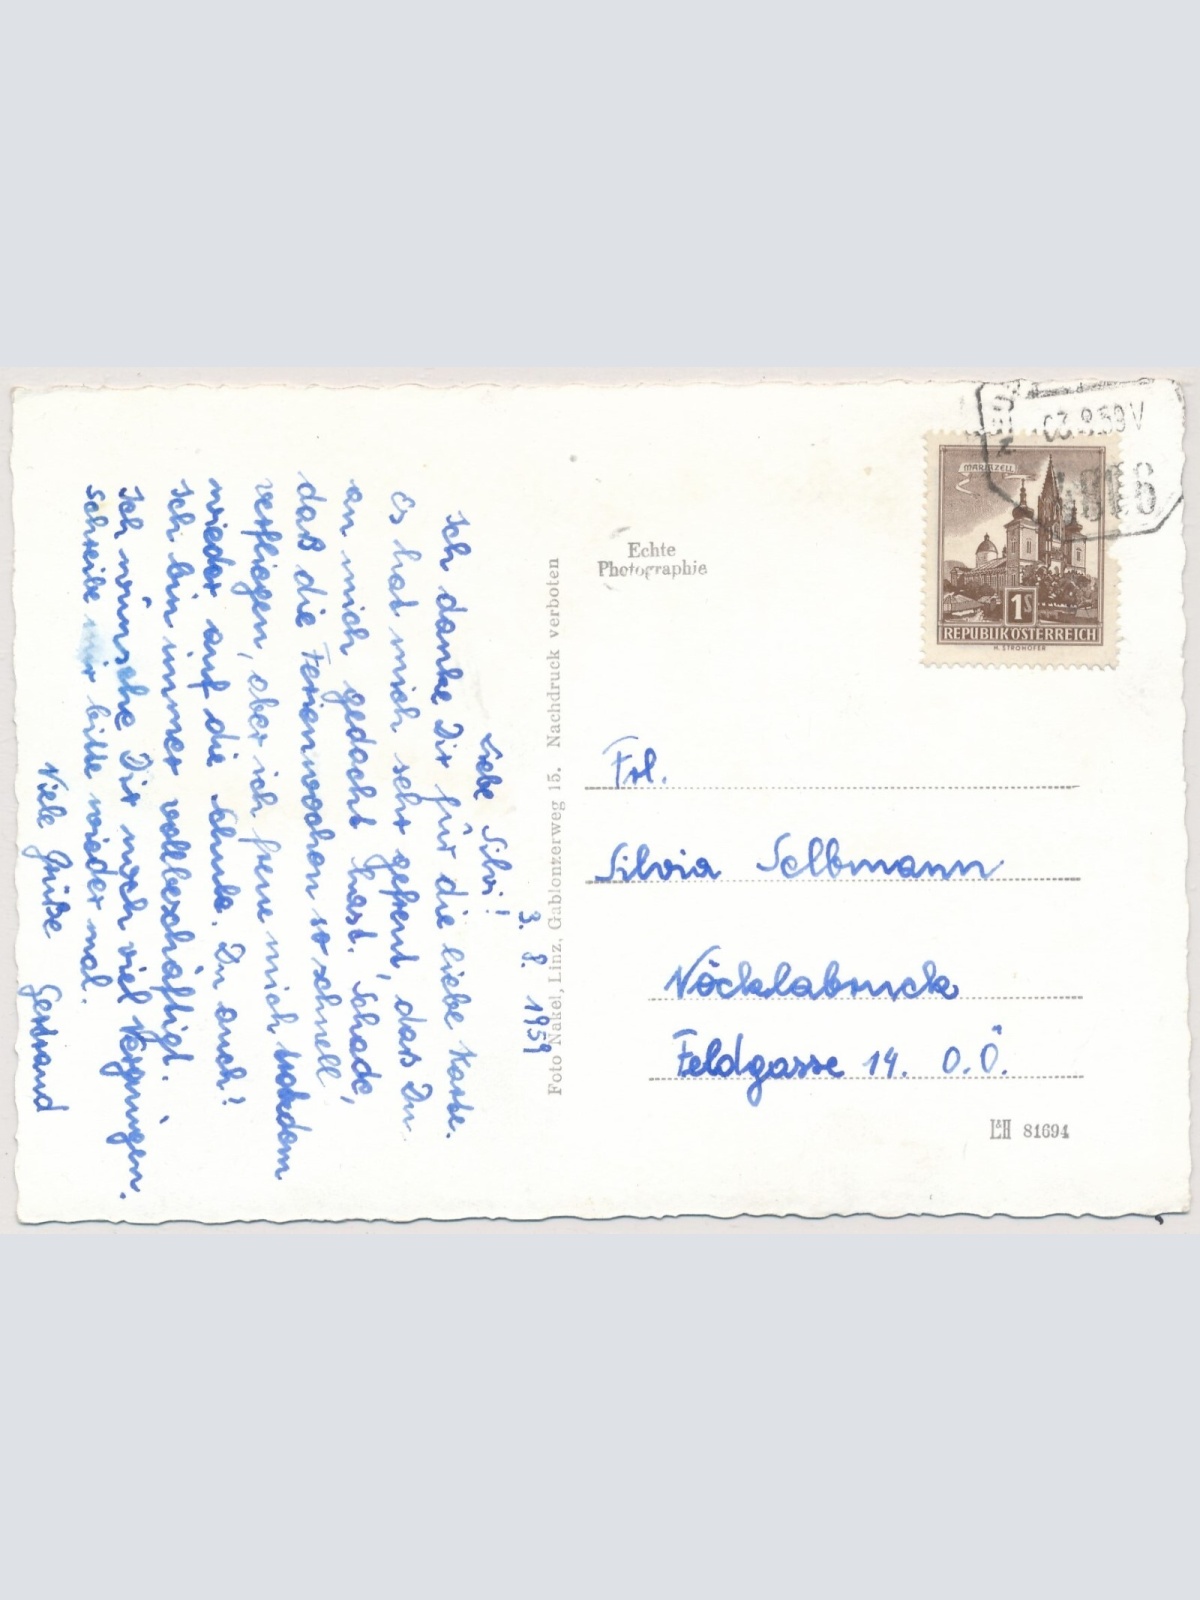 3. 8. 1959
Liebe Silvi!
Ich danke Dir für die liebe Karte.
Es hat mich sehr gefreut, daß Du
an mich gedacht hast. Schade,
daß die Ferienwochen so schnell
verfliegen, aber ich freue mich trotzdem
wieder auf die Schule. Du auch?
Ich bin immer vollbeschäftigt.
Ich wünsche Dir noch viel Vergnügen.
Schreibe mir bitte wieder mal.
Viele Grüße Gertraud
Foto Nakel, Linz, Gablonzerweg 15. Nachdruck verboten
Echte
Photographie
03.8.59 V
MARIAZELL
1S
REPUBLIK ÖSTERREICH
H. STROHOFER
Frl.
Silvia Selbmann
Vöcklabruck
Feldgasse 14. O.Ö.
L&H 81694